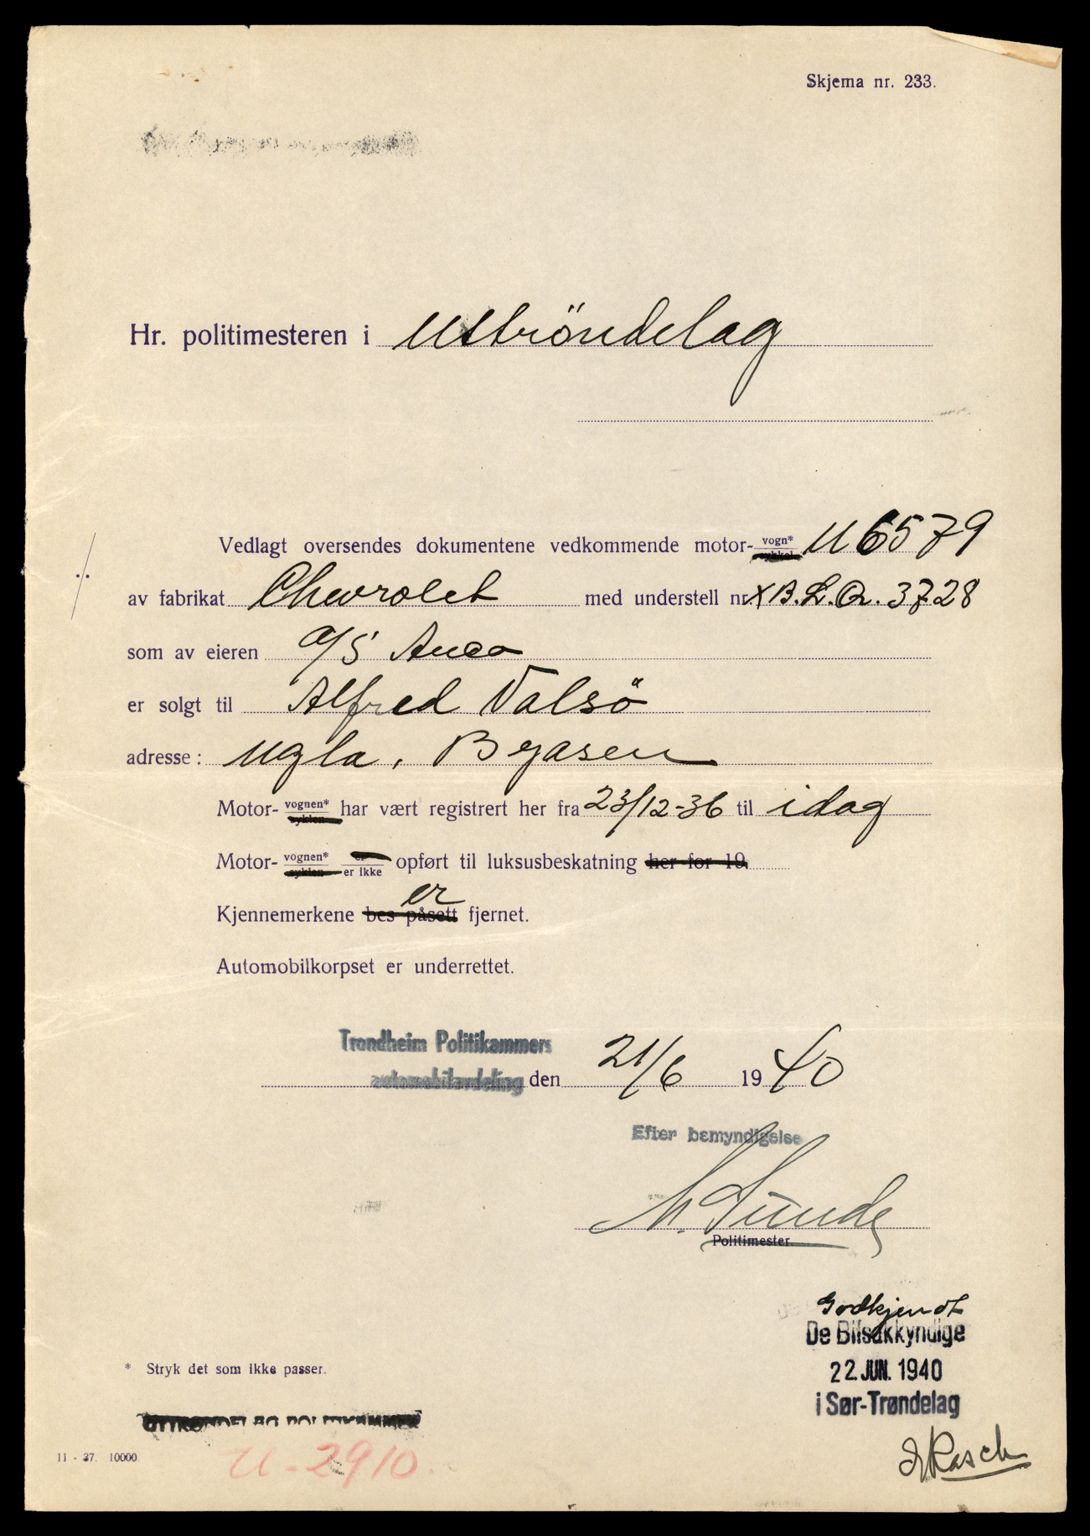 Skjema nr. 233.
Hr. politimesteren i Uttröndelag
Vedlagt oversendes dokumentene vedkommende motor- vogn* sykkel U 6579
av fabrikat Chevrolet med understell nr. XB.L.Q. 3728
som av eieren a/s Anco
er solgt til Alfred Valsö
adresse: Ugla, Byåsen
Motor- vognen* syklen har vært registrert her fra 23/12-36 til idag
Motor- vognen* syklen er er ikke opført til luksusbeskatning her for 19
Kjennemerkene bes påsett er fjernet.
Automobilkorpset er underrettet.
Trondheim Politikammers
automobilavdeling den 21/6 1940
Efter bemyndigelse
M. Sunde
Politimester.
Godkjendt
De Bilsakkyndige
22. JUN. 1940
i Sør-Trøndelag
* Stryk det som ikke passer.
UTTRØNDELAG POLITIKAMMER
11 - 37. 10000
U-2910.
Rasch